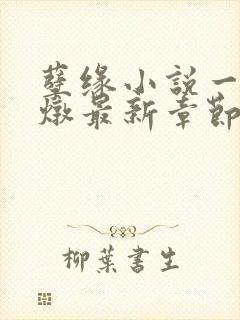 孽缘小說一
燉最新章節
柳葉書生